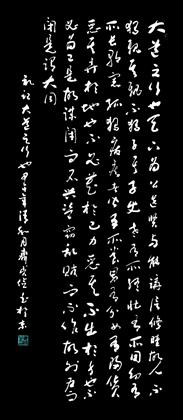 大道之行也天下為公選賢與能講信修睦故人不
獨親其親不獨子其子使老有所終壯有所用幼有
所長寡孤獨廢疾者皆有所養男有分女有歸貨
惡其棄於地也不必藏於己力惡其不出於身也不
必為己是故謀閉而不興盜竊亂賊而不作故外戶而不
閉是謂大同
禮記大道之行也 月 書於京